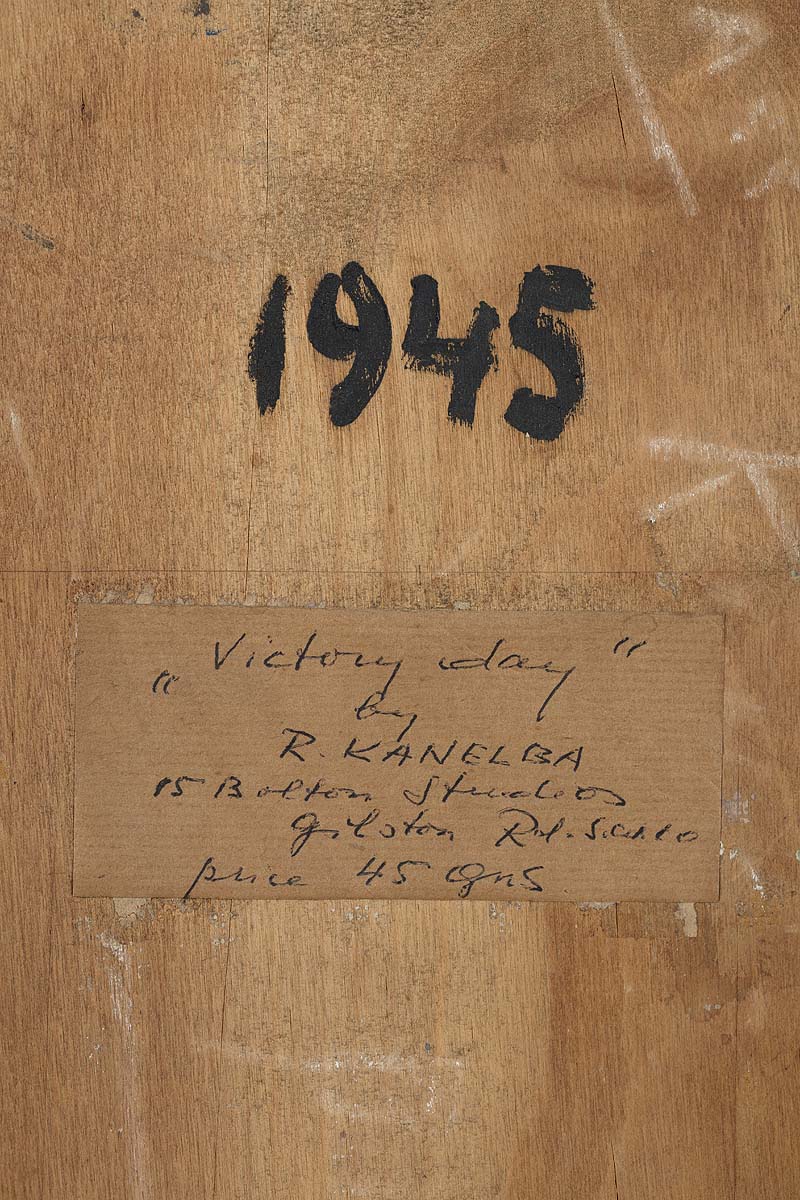 1945
„Victory day"
by
R. KANELBA
15 Bolton Studios
Gilston Rd. S.W.10
price 45 Gns